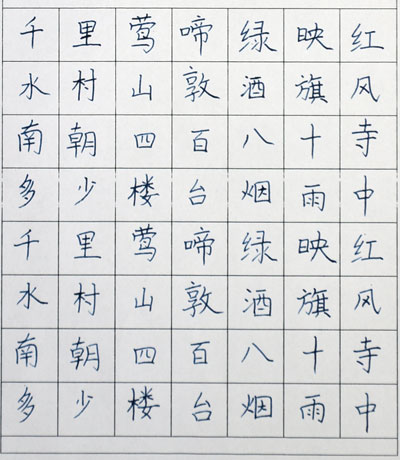 千里莺啼绿映红
水村山敦酒旗风
南朝四百八十寺
多少楼台烟雨中
千里莺啼绿映红
水村山敦酒旗风
南朝四百八十寺
多少楼台烟雨中